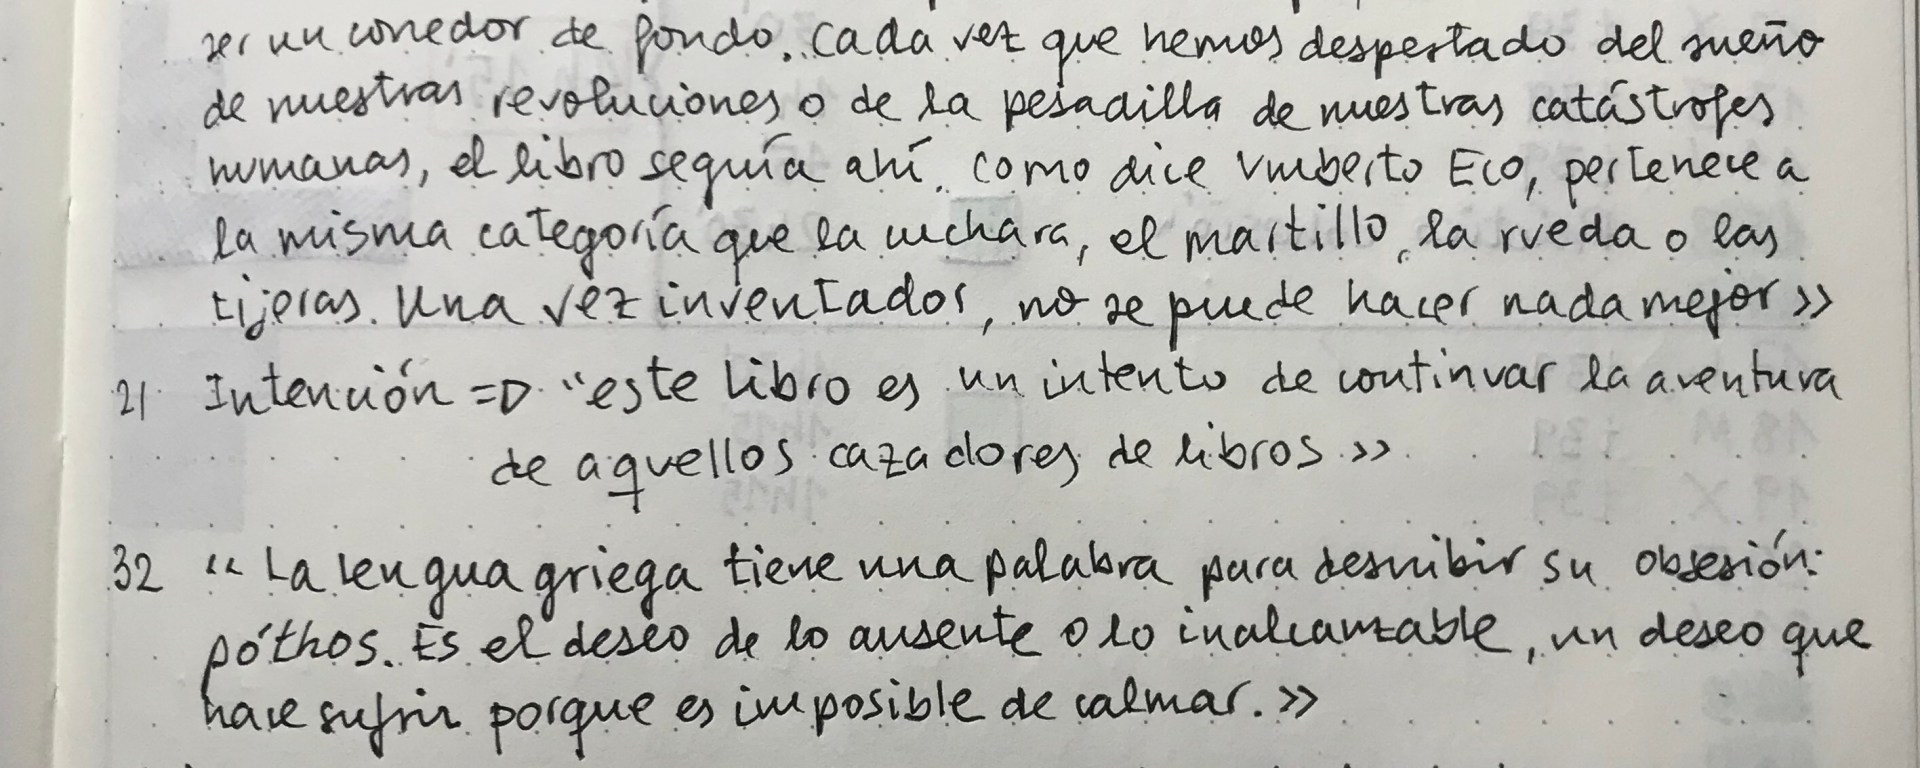 ser un corredor de fondo. Cada vez que hemos despertado del sueño
de nuestras revoluciones o de la pesadilla de nuestras catástrofes
humanas, el libro seguía ahí. Como dice Umberto Eco, pertenece a
la misma categoría que la cuchara, el martillo, la rueda o las
tijeras. Una vez inventados, no se puede hacer nada mejor »
21 Intención => "este libro es un intento de continuar la aventura
de aquellos cazadores de libros »
32 “ La lengua griega tiene una palabra para describir su obsesión:
póthos. Es el deseo de lo ausente o lo inalcanzable, un deseo que
hace sufrir porque es imposible de calmar. »